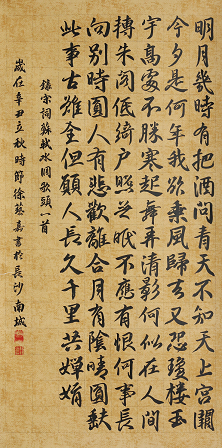 明月幾時有把酒問青天不知天上宮闕
今夕是何年我欲乘風歸去又恐瓊樓玉
宇高處不勝寒起舞弄清影何似在人間
轉朱閣低綺戶照無眠不應有恨何事長
向別時圓人有悲歡離合月有陰晴圓缺
此事古難全但願人長久千里共嬋娟
錄宋詞蘇軾水調歌頭一首
歲在辛丑立秋時節徐嘉書於長沙南城